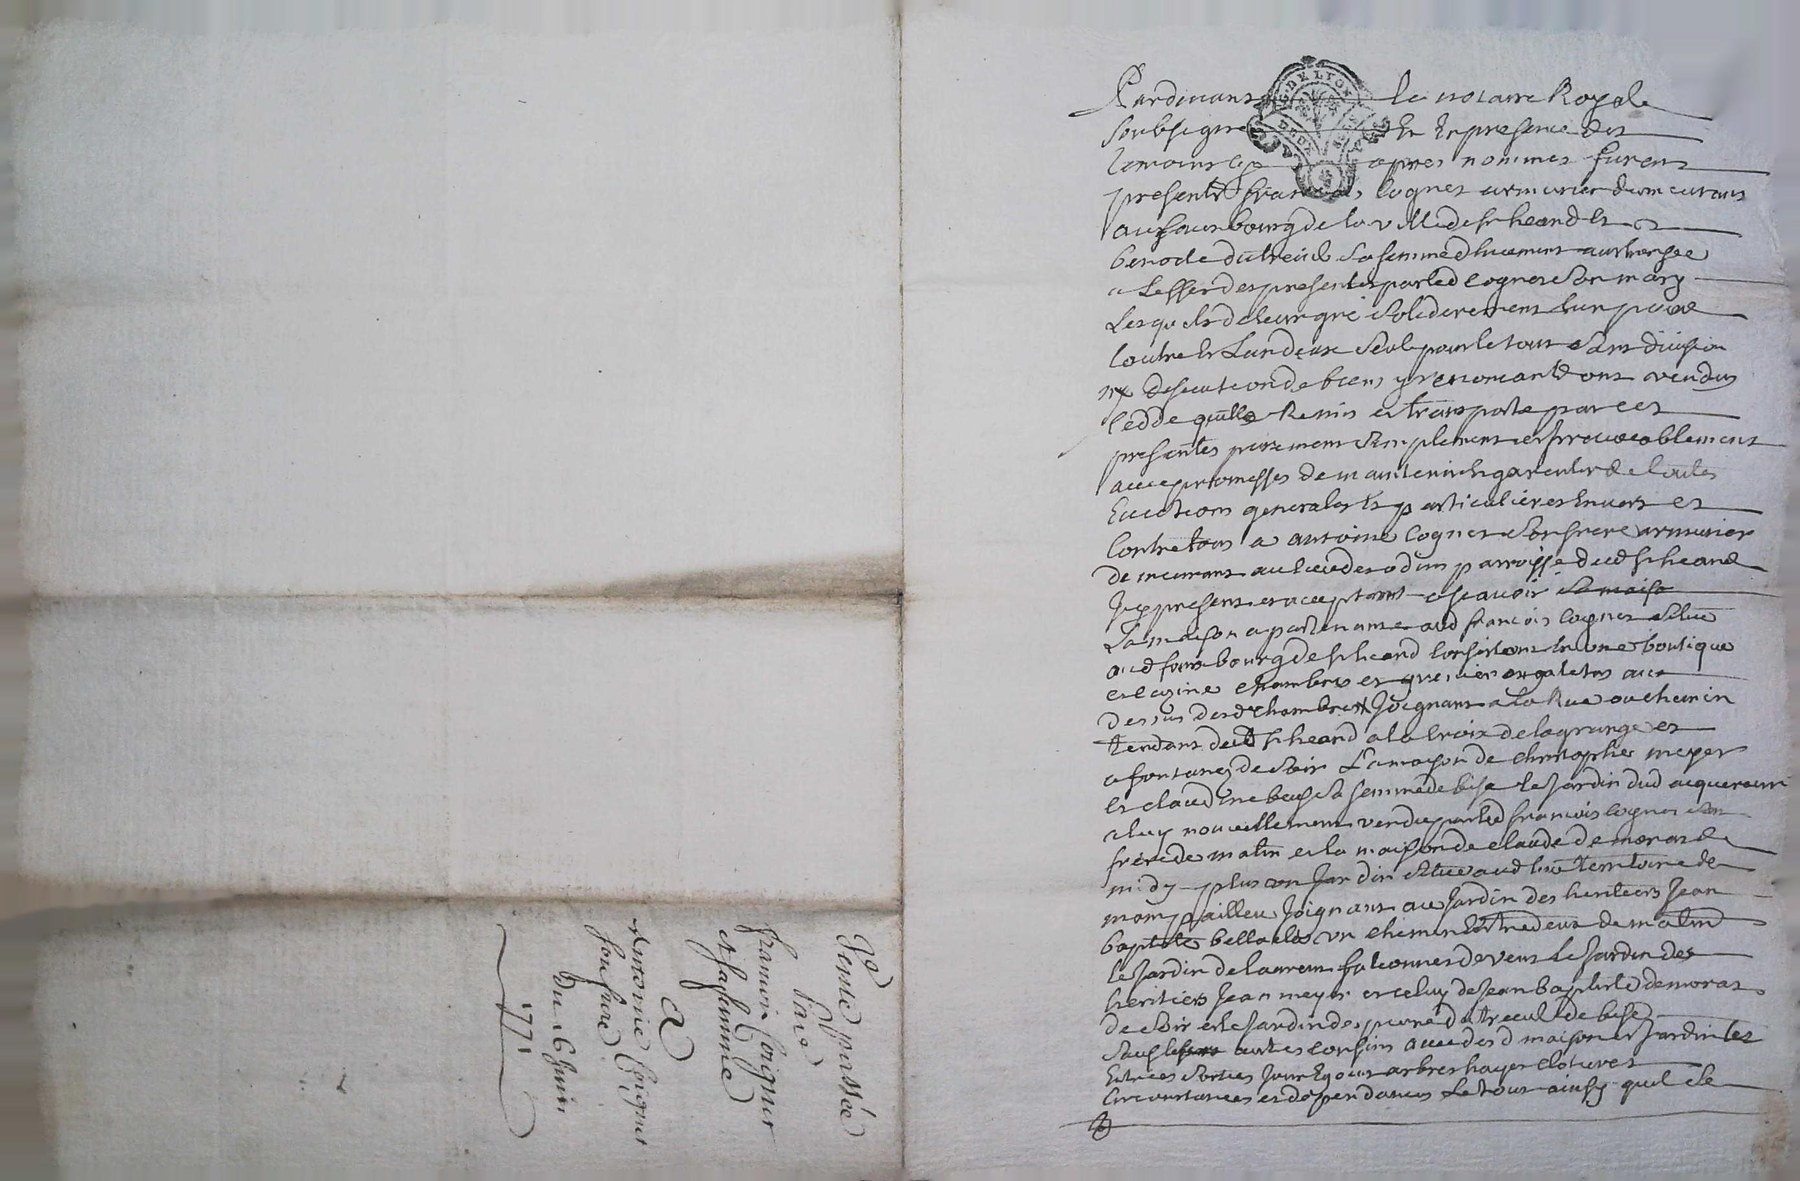 Pardevant le notaire Royale
soubsigne Et En presence des
temoins cy apres nommes furent
presents francois Cognet armurier demeurant
au faux bourg de la ville de st heand Et
benoite dutreuil sa femme duement authorisée
a Leffet des presentes par led Cognet son mary
Lesquels de leur gré solidairement Lun pour
Lautre Et Lun deux seul pour le tout sans division
ny de biens y renoncant ont vendus
Cedde quitte Remis et transporte par ces
presentes purement simplement et irrevocablement
avec promesses de maintenir Et garentir de toutes
Evictions generales Et particulieres Envers et
Contre tous a antoine Cognet son frere armurier
demeurant au lieu de parroisse dud st heand
Icy present et acceptant ascavoir
La maison apartenante aud francois Cognet située
aud faux bourg de st heand Consistant En une boutique
et cuzine chambres et grenier ou galetas au
dessus desd chambres Joignant a la Rue ou chemin
tendant dud st heand a la Croix de la grange et
a fontanez de soir La maison de christophle meyer
Et claudine sa femme de bise le Jardin dud acquereur
a luy nouvellement vendu par led francois Cognet son
frere de matin et la maison de claude de moras de
midy plus un Jardin situé aud lieu territoire de
Joignant au Jardin des heritiers Jean
baptiste un chemin Entredeux de matin
Le Jardin de laurent de vent Le Jardin des
heritiers Jean meyer et celuy de Jean baptiste demoras
de soir et le Jardin de pierre dutreuil de bise
sauf autres Confins avec desd maison et Jardin les
Entrées sorties Jour Egout arbres hayes clotures
Circonstances et dependances Le tout ainsy quil se
Vente passée
Par
francois Coignet
et sa femme
A
Antoine Coignet
son frere
Du 6 Juin
1771
G. DE LYON